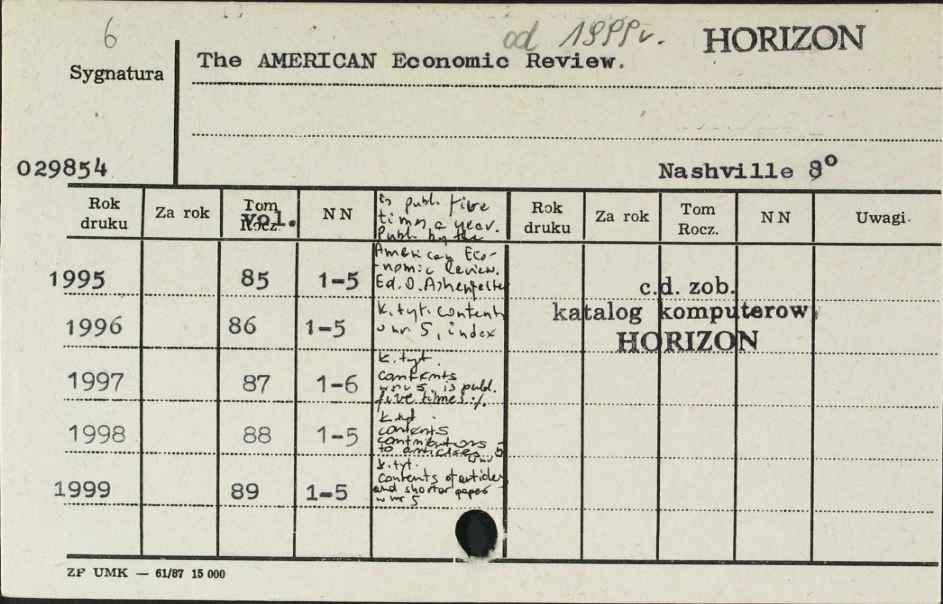 6
od 1999r. HORIZON
Sygnatura
The AMERICAN Economic Review.
029854
Nashville 8°
Rok druku Za rok Tom Rocz. vol. NN
is publ. five
times a year.
Publ. by the
American Eco-
nomic Review.
Ed. O. Ashenfelte
Rok druku Za rok Tom Rocz. NN Uwagi
1995 85 1-5
1996 86 1-5 k.tyt. contents
w nr 5, index
1997 87 1-6 k.tyt.
contents
w nr 5, is publ.
five times
1998 88 1-5 k.tyt.
contents
contributions
to articles
1999 89 1-5 k.tyt.
contents of articles
and shorter paper
w nr 5
c.d. zob.
katalog komputerow.
HORIZON
ZP UMK — 61/87 15 000